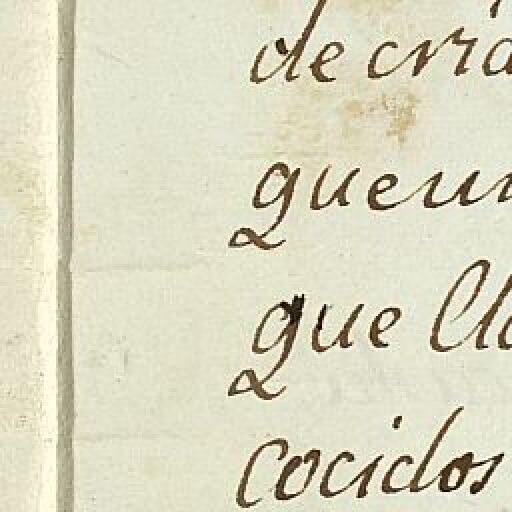 de cria
que un
que lla
cocidos